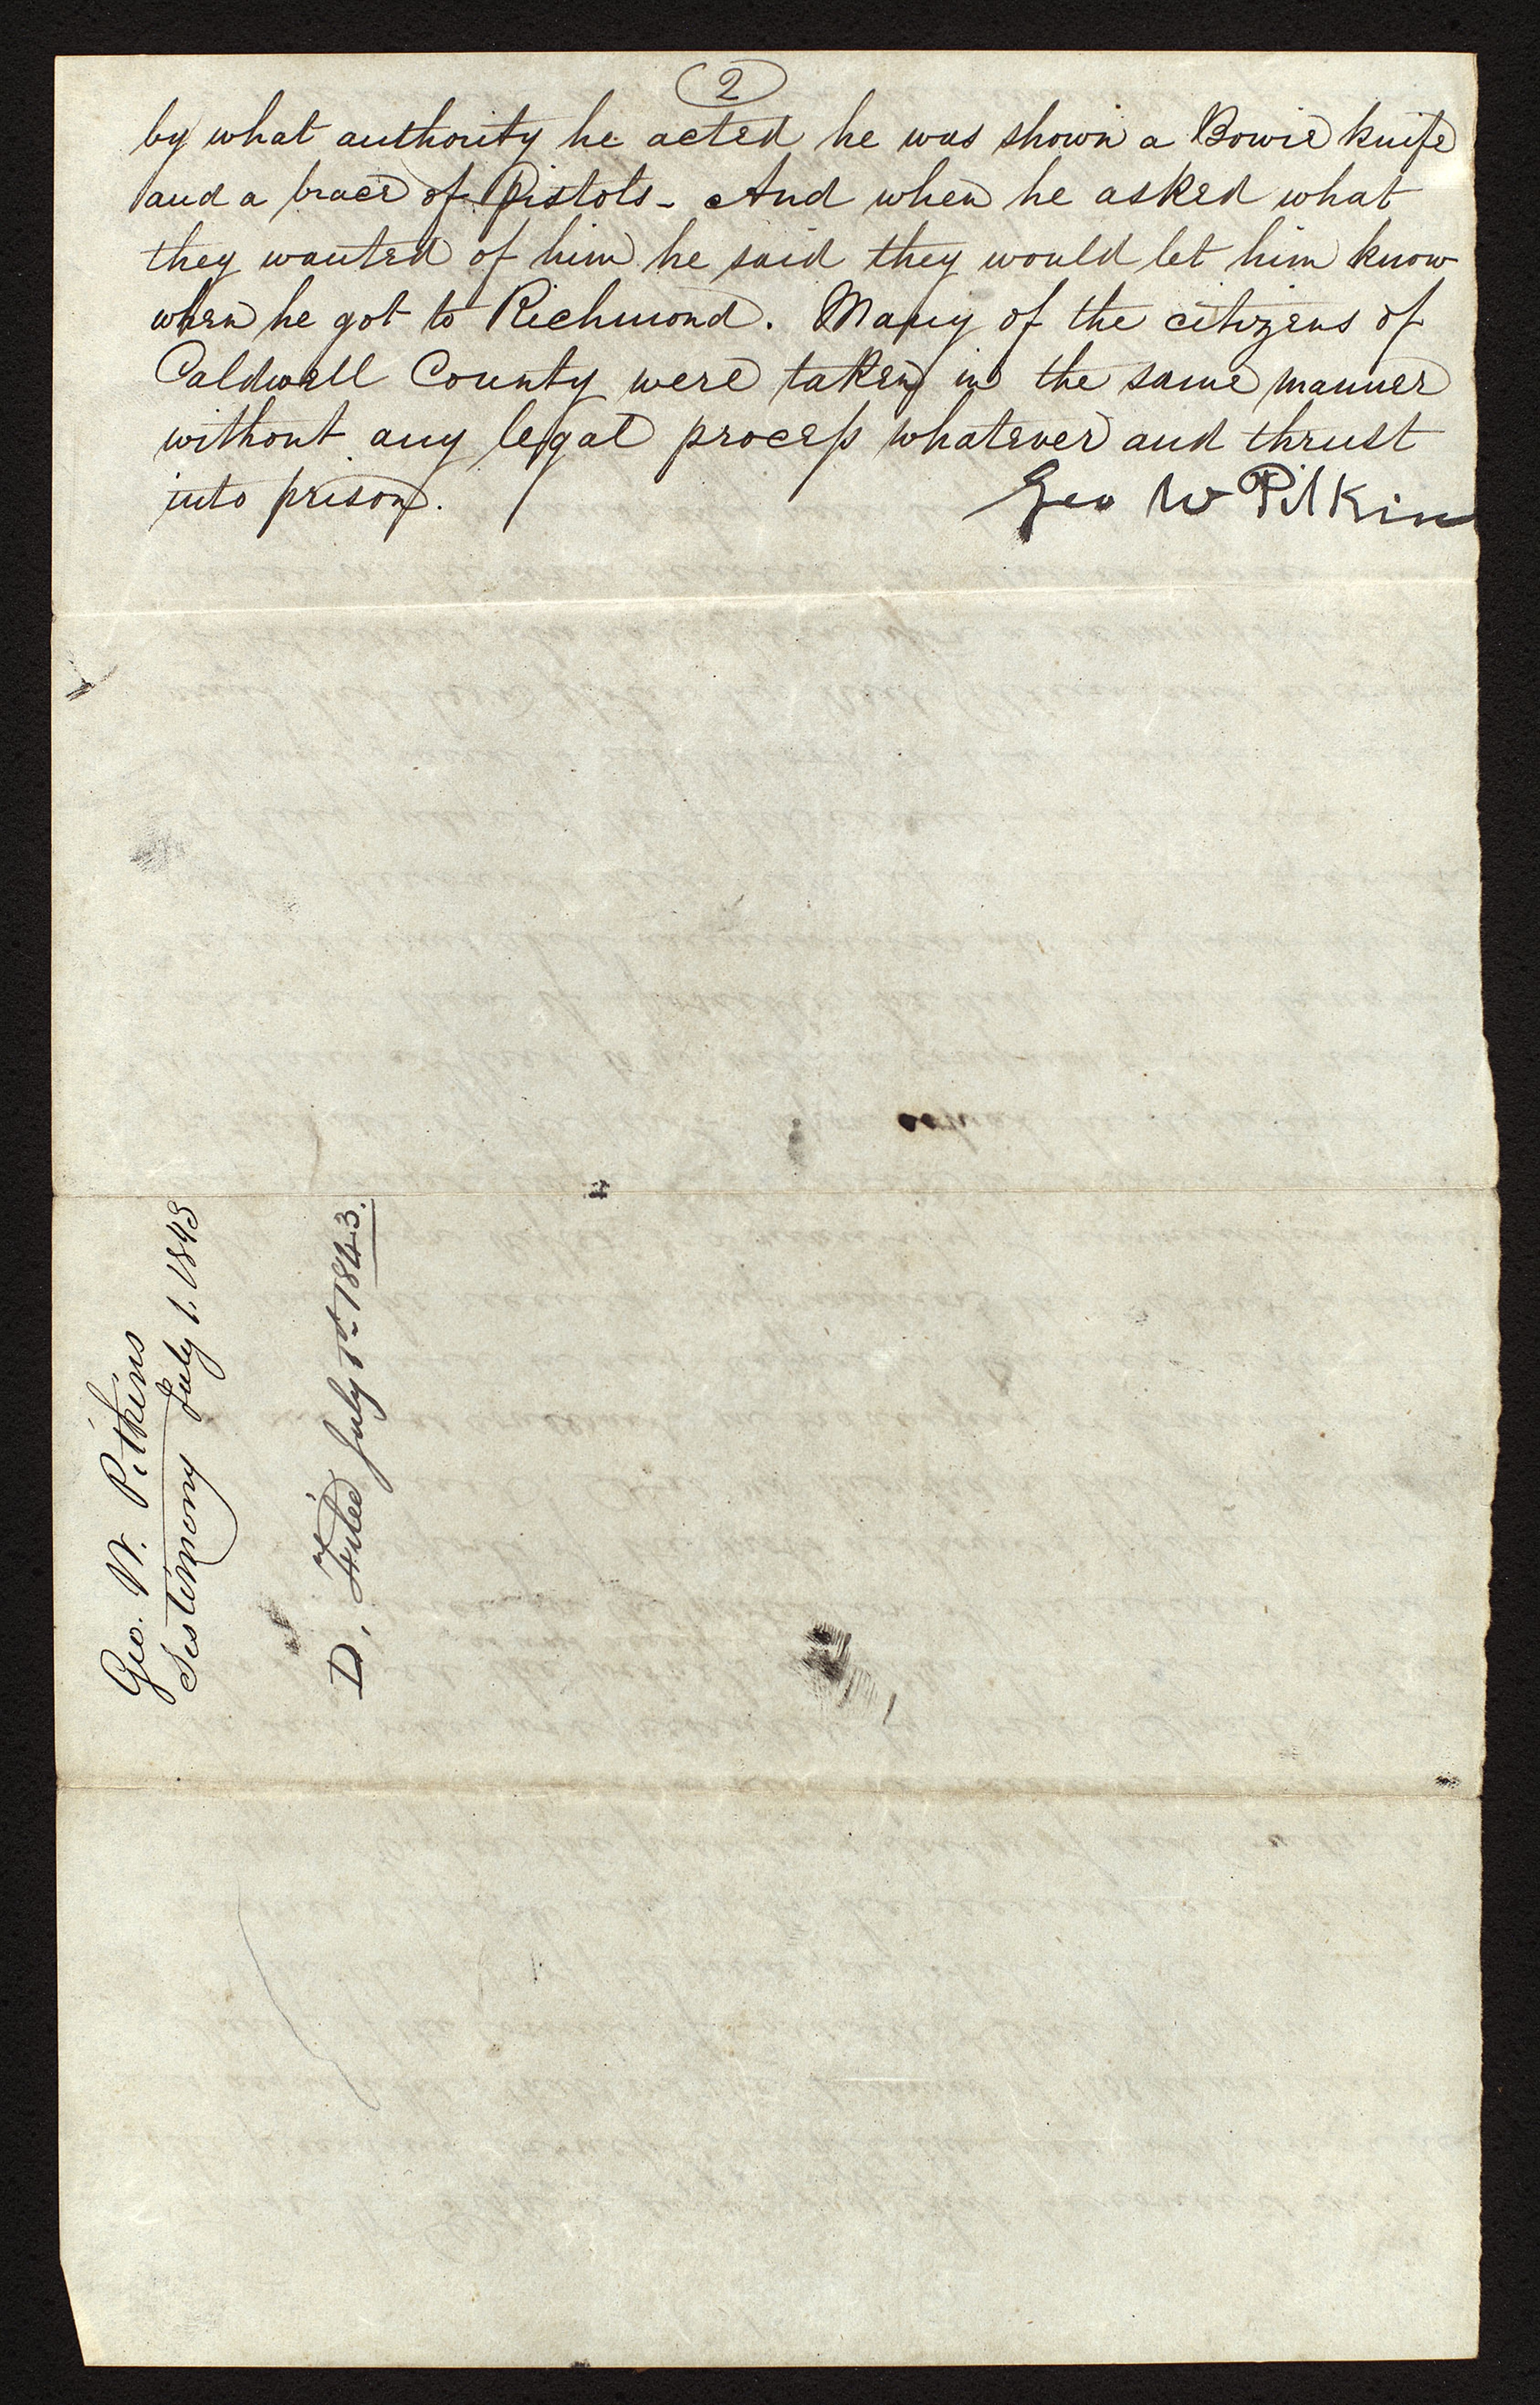 2
by what authority he acted he was shown a Bowie knife
and a brace of Pistols - And when he asked what
they wanted of him he said they would let him know
when he got to Richmond. Many of the citizens of
Caldwell County were taken in the same manner
without any legal process whatever and thrust
into prison.
Geo W Pitkin
Geo. W. Pitkins
Testimony July 1. 1843
D, Filed July 1st 1843.